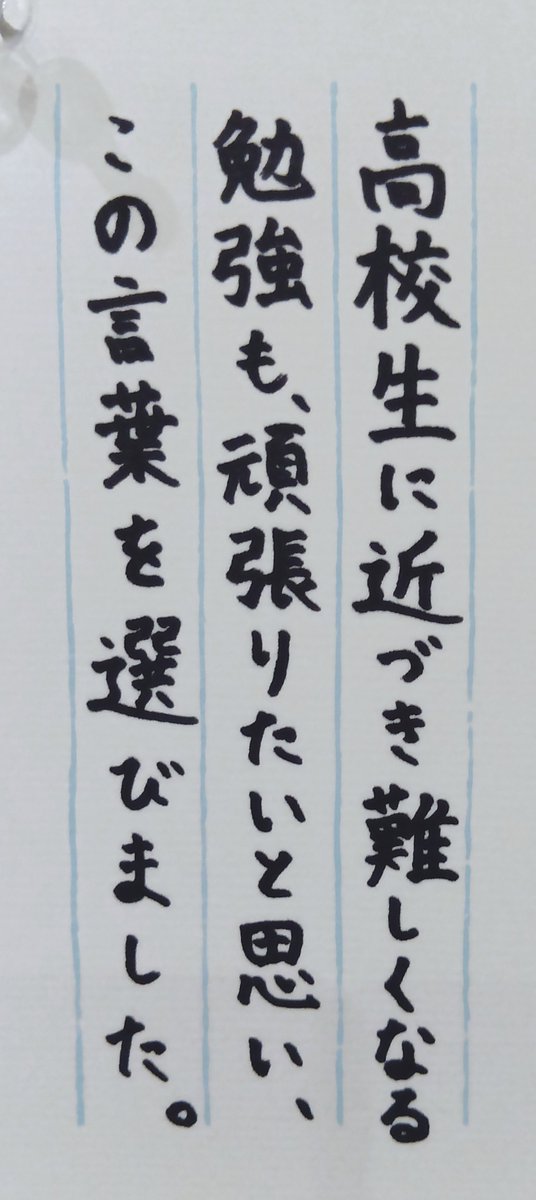 高校生に近づき難しくなる
勉強も、頑張りたいと思い、
この言葉を選びました。